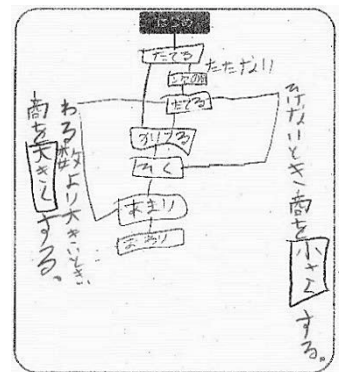 はじめ
たてる
たたない
たてる
かける
ひく
あまり
おわり
ひけないとき商を小さくする。
わる数より大きいとき
商を大きくする。